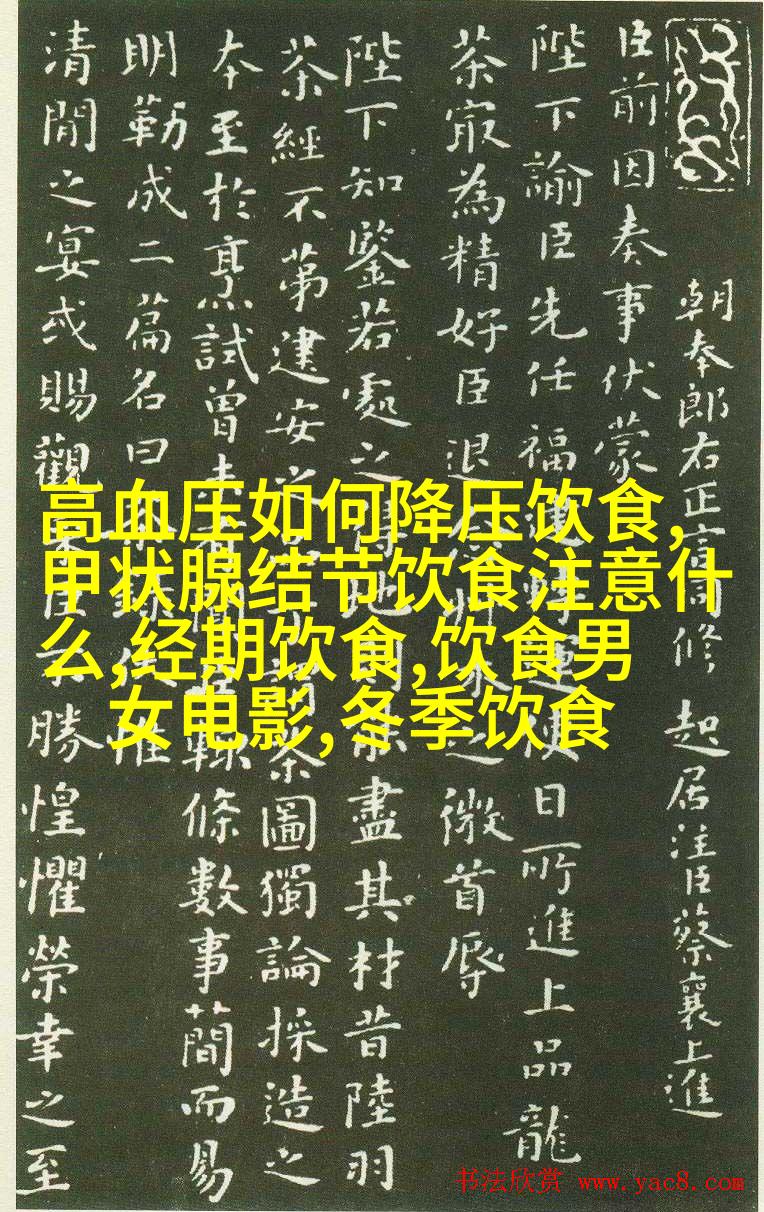 朝奉郎右正言同修起居注臣蔡襄上進
臣前因奏事伏蒙
陛下諭臣先任福建轉運使日所進上品龍
茶寂為精好臣退之微首辱
陛下知鑒若處之得地盡其材昔陸羽
茶經不第建安之茶圖獨論採造之
本至於烹試曾未輒條數事簡而易
明勒成二篇名曰惟
清閒之宴或賜觀臣不勝惶懼榮幸之至
高血压如何降压饮食,
甲状腺结节饮食注意什
么,经期饮食,饮食男
女电影,冬季饮食
书法欣赏 www.yac8.com